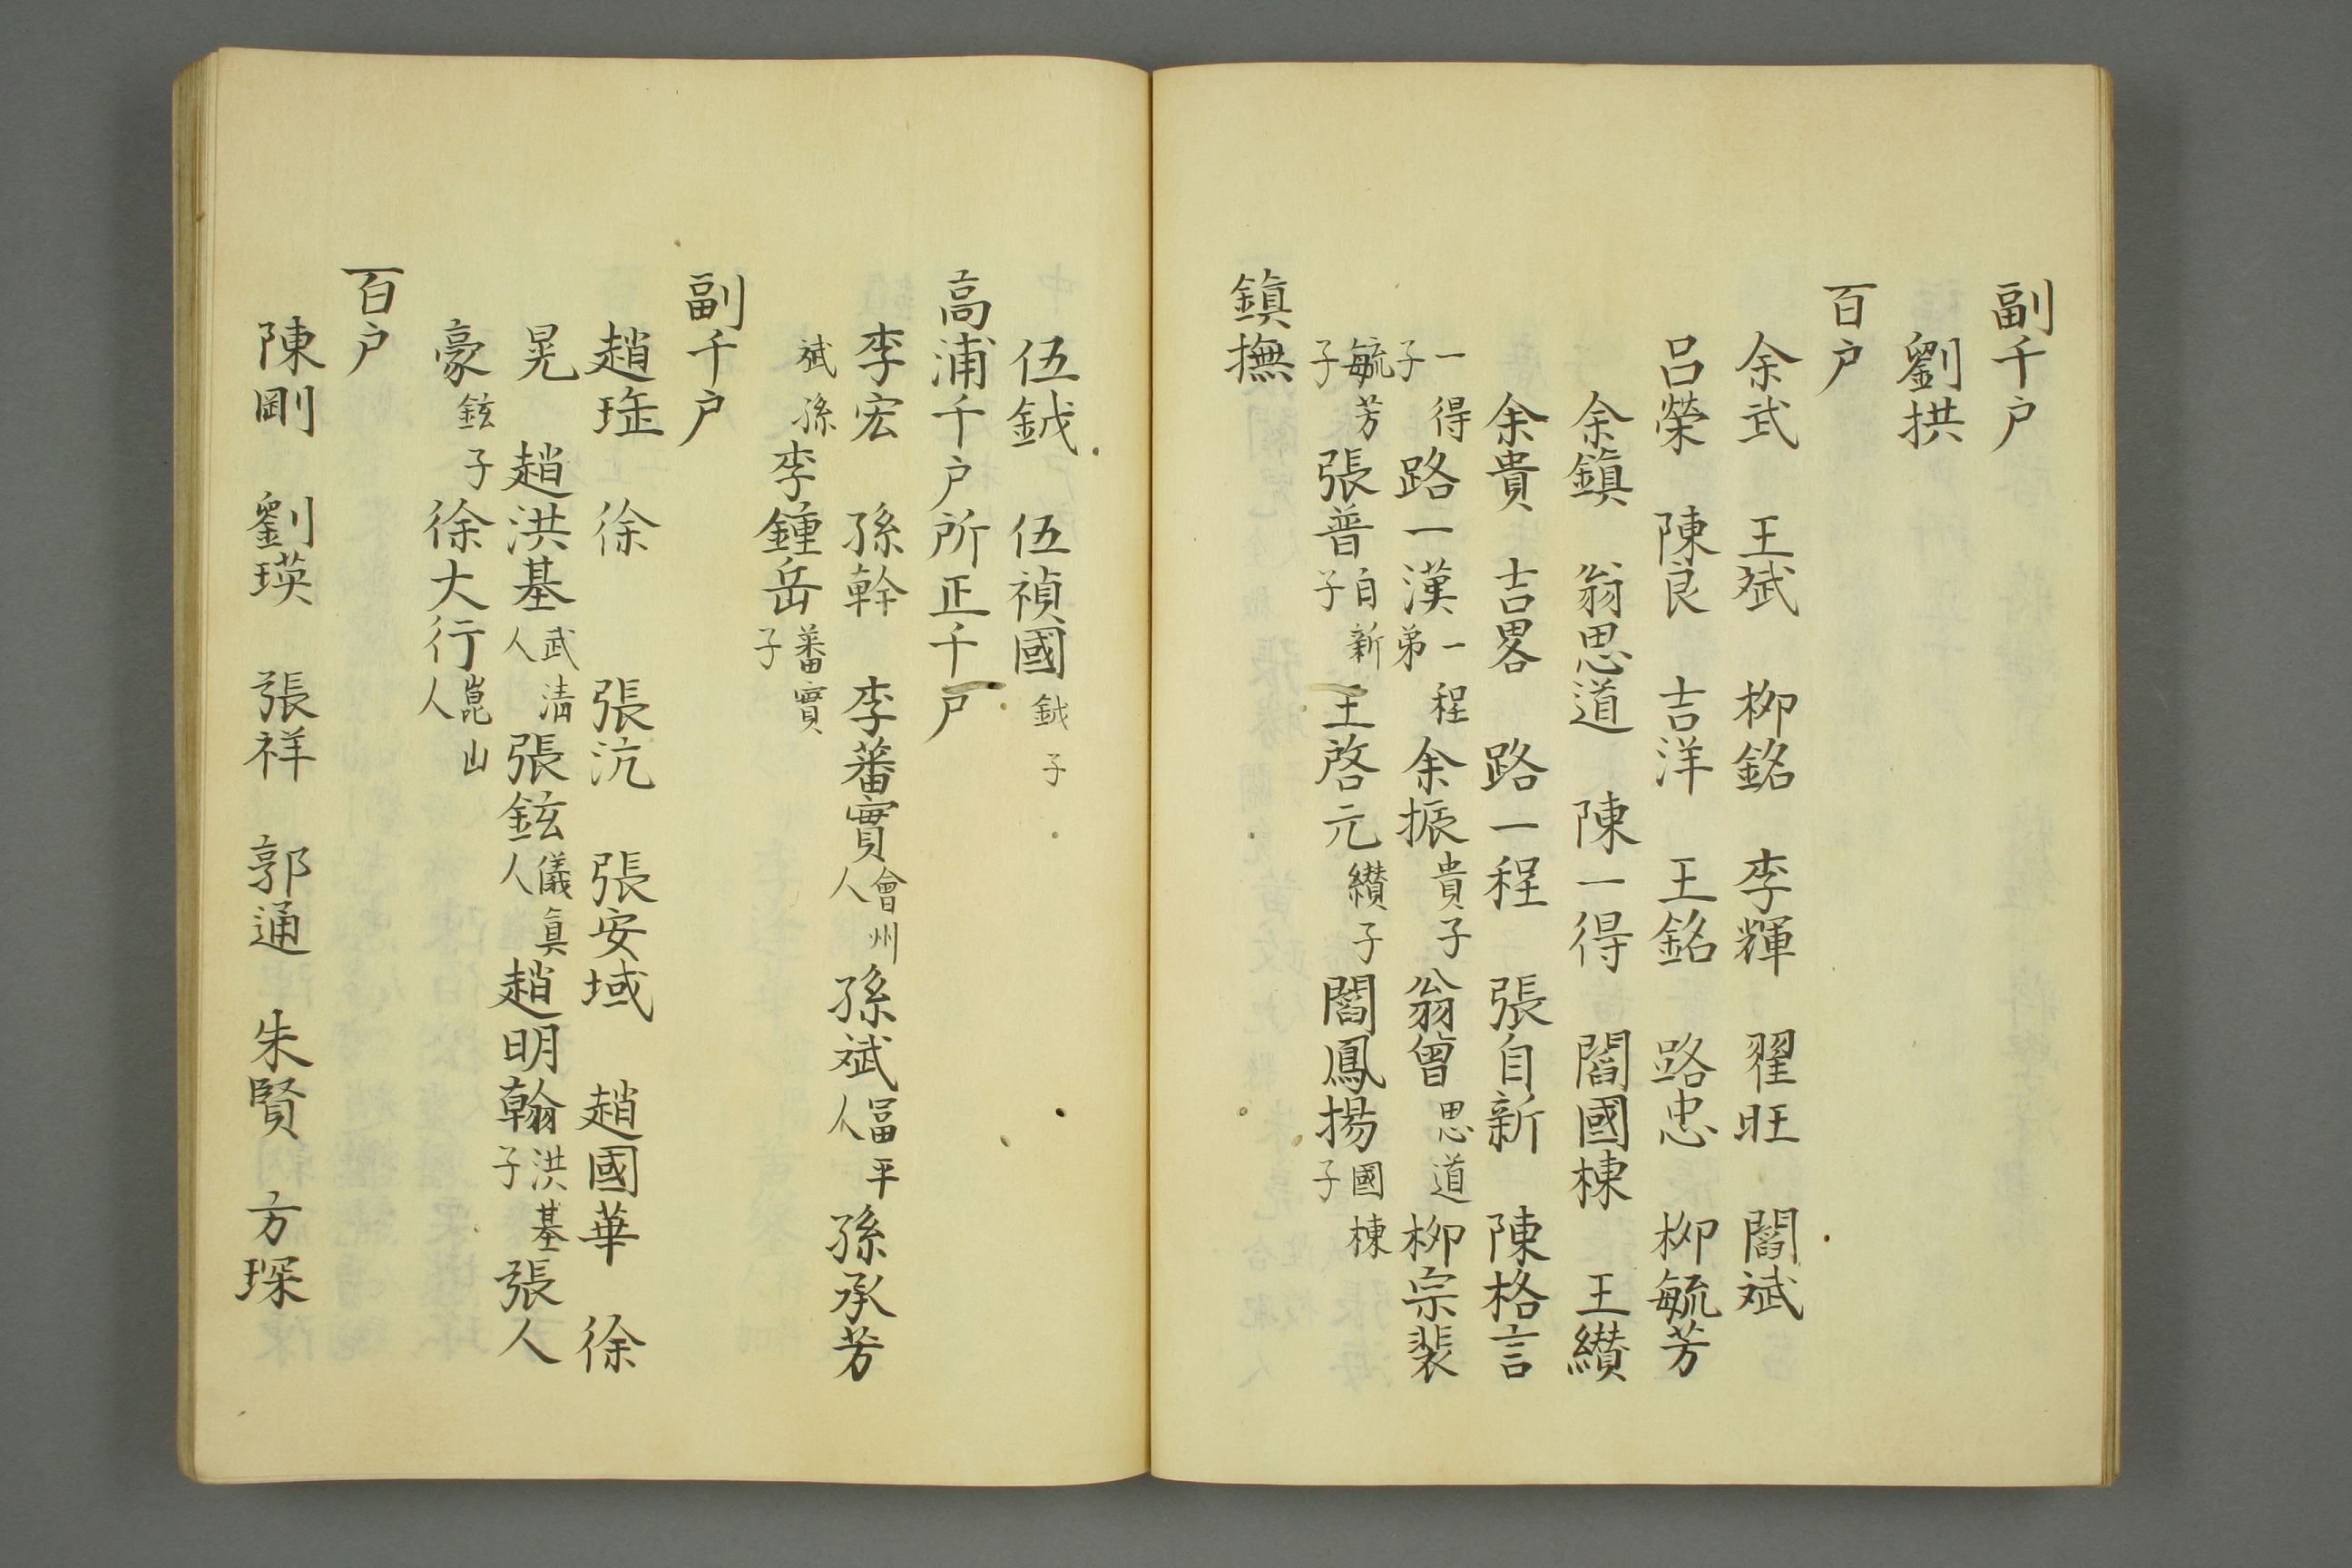 副千户
劉拱
百户
余武　王斌　柳銘　李輝　翟旺　閻斌
呂榮　陳良　吉洋　王銘　路忠　柳毓芳
余鎮　翁思道　陳一得　閻國棟　王纘
余貴　吉畧　路一程　張自新　陳格言
一得子路一漢一程弟余振貴子翁曾思道柳宗裴
毓芳子張普自新子王啓元纘子閻鳳揚國棟子
鎮撫
伍鉞　伍禎國鉞子
高浦千户所正千户
李宏　孫幹　李蕃實會州人孫斌冨平人孫承芳
斌孫李鍾岳蕃實子
副千户
趙珤　徐　張沆　張安域　趙國華　徐
晃　趙洪基武清人張鉉儀真人趙明翰洪基子張人
豪鉉子徐大行崑山人
百户
陳剛　劉瑛　張祥　郭通　朱賢　方琛